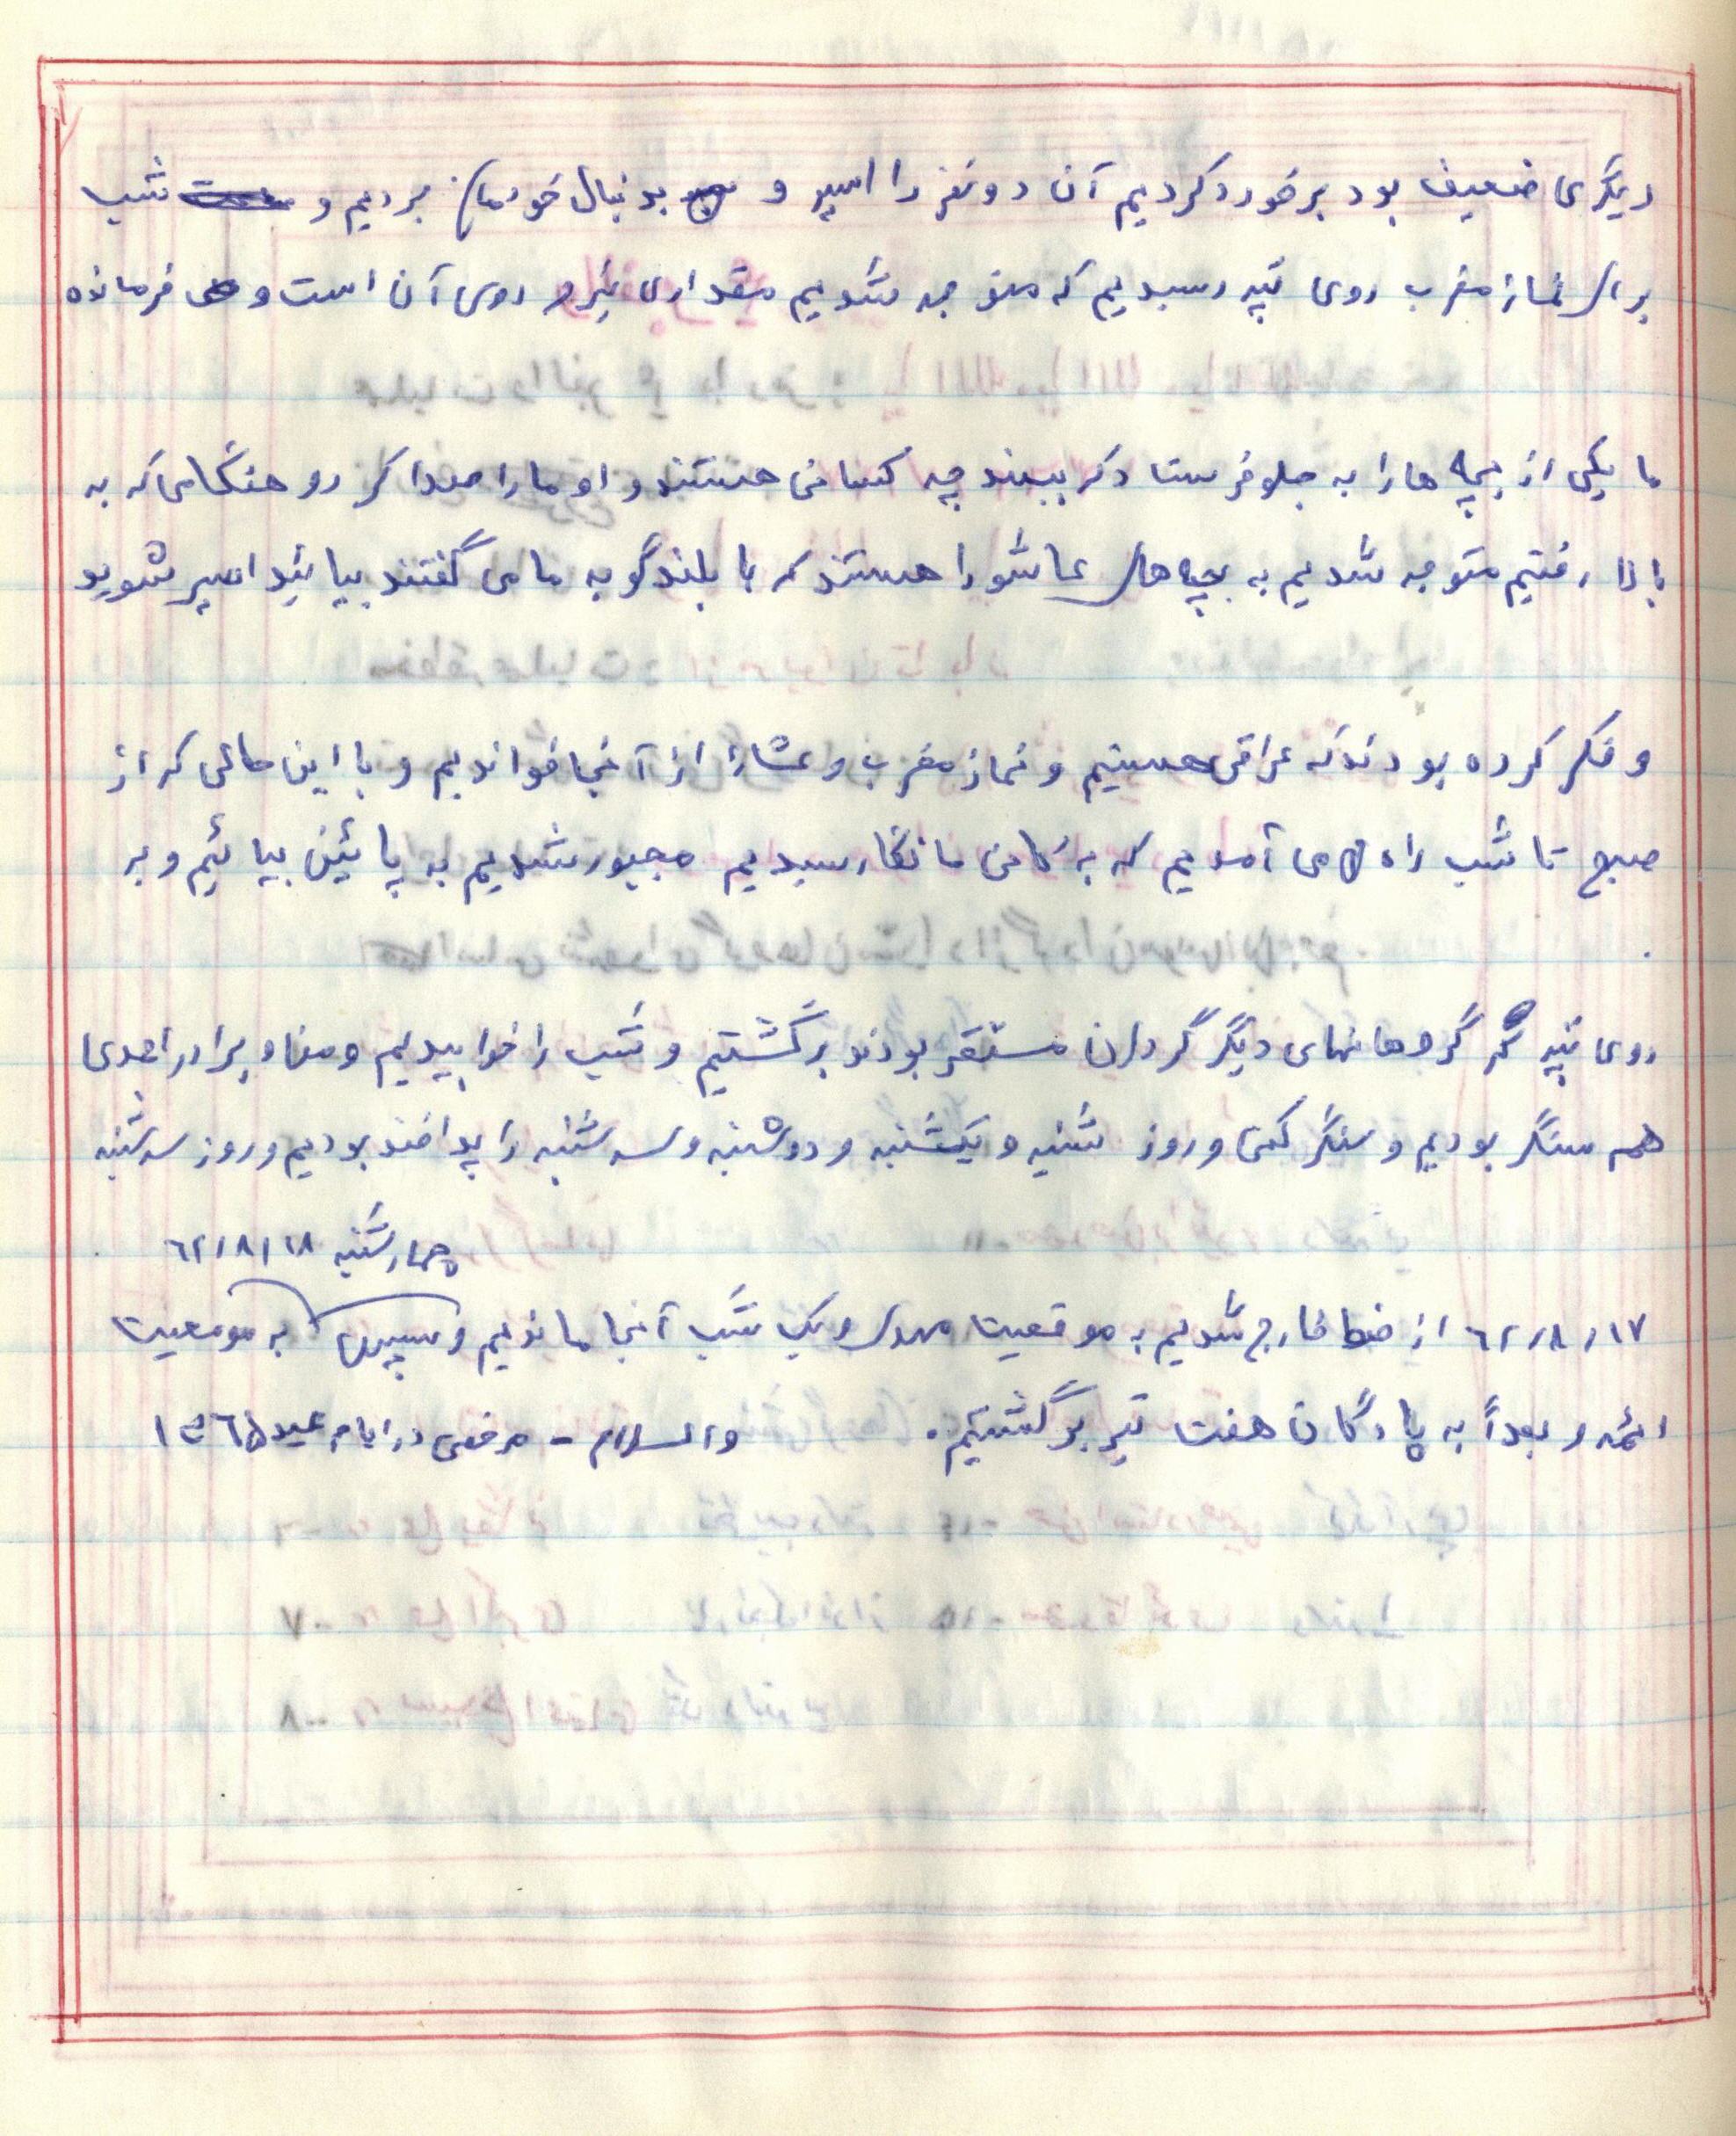 دیگری ضعیف بود برخورد کردیم آن دو نفر را اسیر و بدنبال خودمان بردیم و شب
برای نماز مغرب روی تپه رسیدیم که متوجه شدیم مقداری نیرو روی آن است و فرمانده
ما یکی از بچه ها را به جلو فرستاد که ببیند چه کسانی هستند و او ما را صدا کرد و هنگامی که به
بالا رفتیم متوجه شدیم به بچه های عاشورا هستند که با بلندگو به ما می گفتند بیائید اسیر شوید
و فکر کرده بودند که عراقی هستیم و نماز مغرب و عشا را از آنجا خواندیم و با این حالی که از
صبح تا شب راه می آمدیم که به کانی مانگا رسیدیم مجبور شدیم به پائین بیائیم و بر
روی تپه گروهانهای دیگر گردان مستقر بودند برگشتیم و شب را خوابیدیم و من و برادر احدی
هم سنگر بودیم و سنگر کنی و روز شنبه و یکشنبه و دوشنبه و سه شنبه را پدافند بودیم و روز سه شنبه
چهارشنبه ٦٢/٨/١٨
٦٢/٨/١٧ از خط خارج شدیم به موقعیت مهدی و یک شب آنجا ماندیم و سپس به موقعیت
ائمه و بعداً به پادگان هفت تیر برگشتیم. والسلام - مرخصی در ایام عید ١٣٦٥